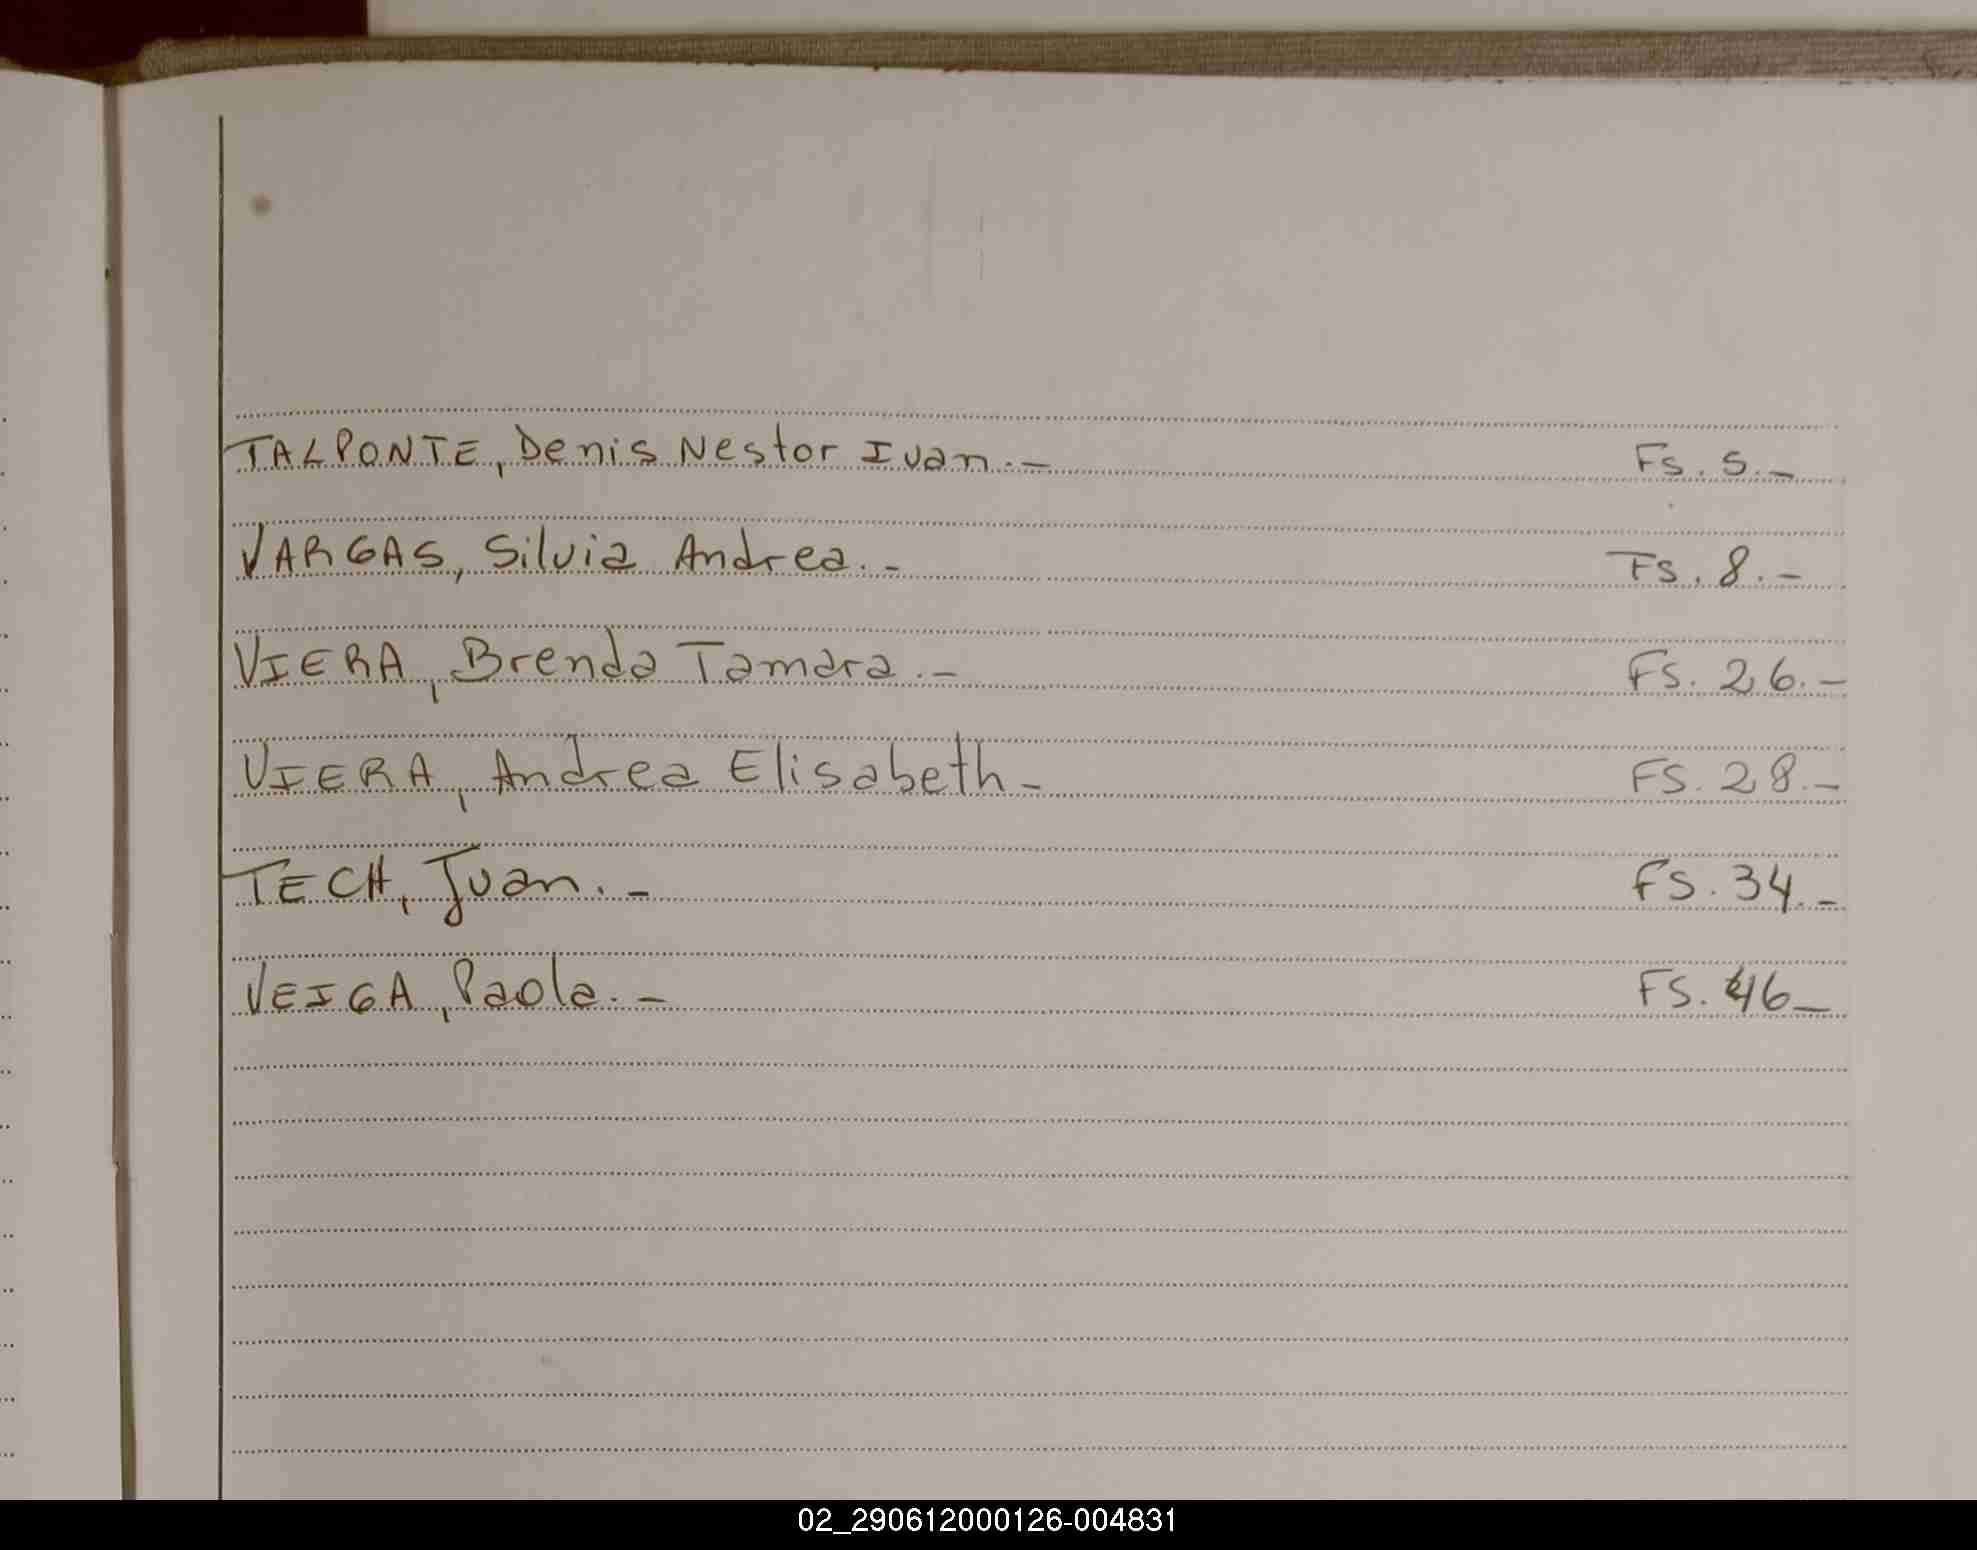 TALPONTE, Denis Nestor Ivan.- Fs. 5.-
VARGAS, Silvia Andrea.- Fs. 8.-
VIERA, Brenda Tamara.- Fs. 26.-
VIERA, Andrea Elisabeth- FS. 28.-
TECH, Juan.- FS. 34.-
VEIGA, Paola.- FS. 46-
02_290612000126-004831